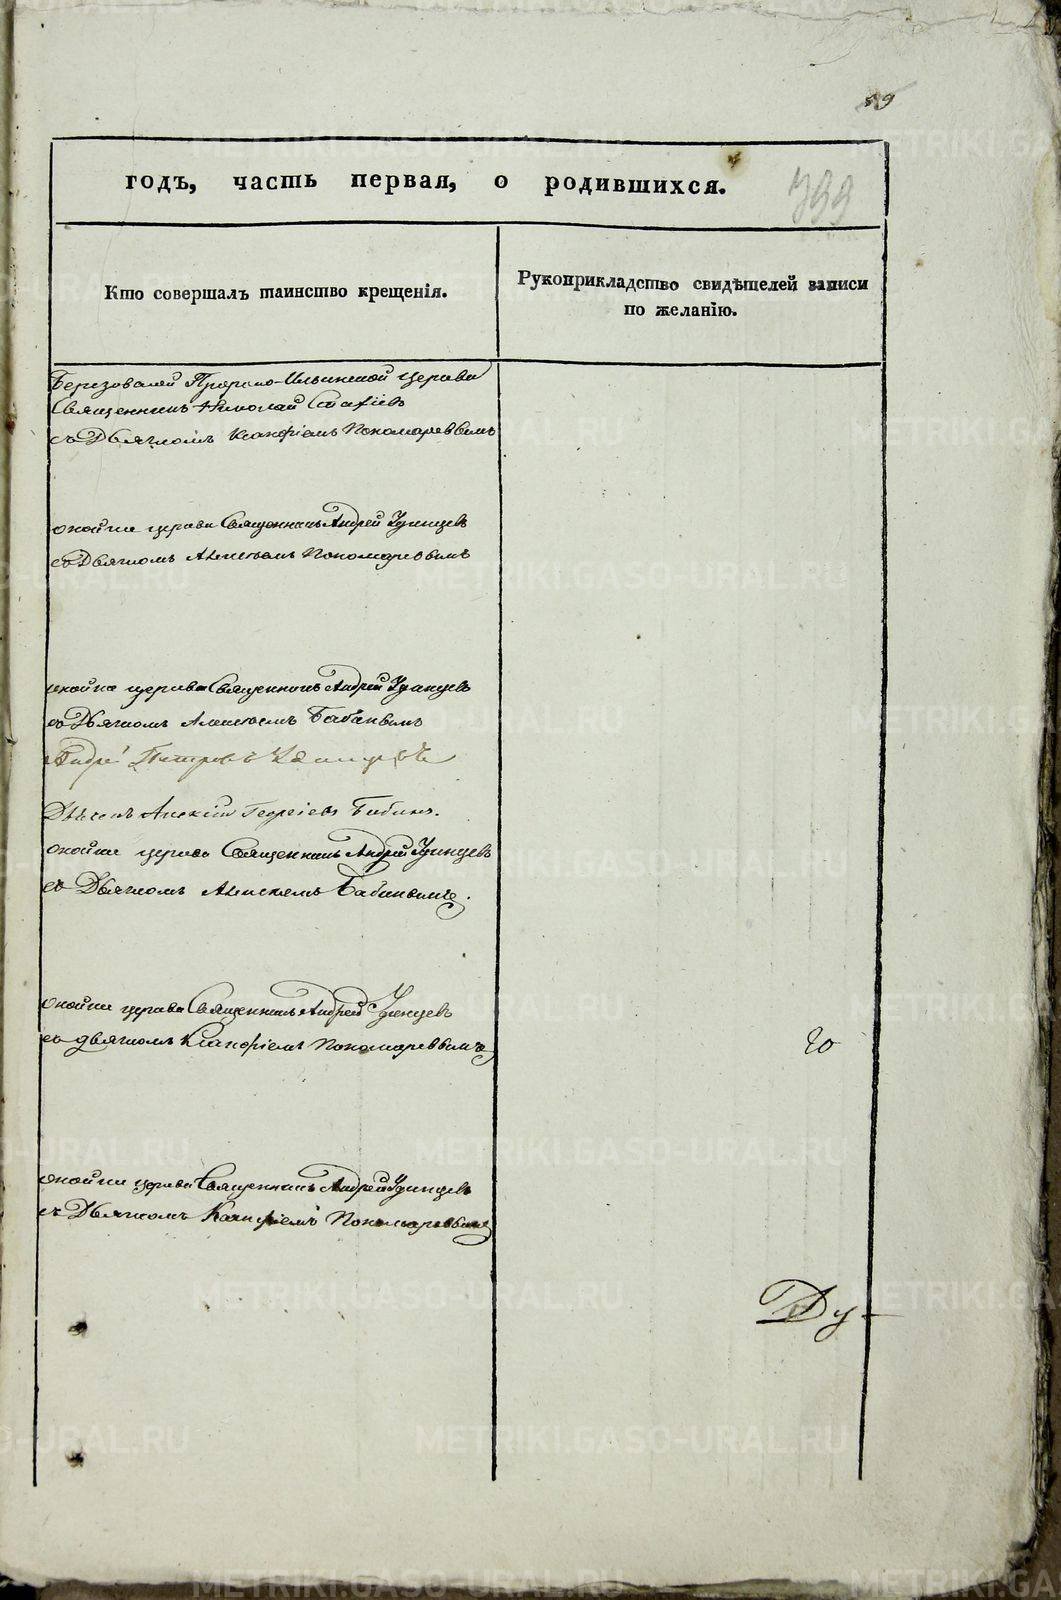 59
399
годъ, часть первая, о родившихся.
Кто совершалъ таинство крещенія.
Рукоприкладство свидѣтелей записи
по желанію.
Березовской Пророко-Ильинской Церкви
Священникъ Николай
съ Дьячкомъ Ксанфіемъ Пономаревымъ
оной же церкви Священникъ Андрей Удинцевъ
съ Дьячкомъ Алексѣемъ Пономаревымъ
оной же церкви Священникъ Андрей Удинцевъ
съ Дьячкомъ Алексѣемъ Бабинымъ
Андрей Петровъ Удинцевъ
Дьячекъ Алексій Георгіевъ Бабинъ.
оной же церкви Священникъ Андрей Удинцевъ
съ Дьячкомъ Алексѣемъ Бабинымъ.
оной же церкви Священникъ Андрей Удинцевъ
съ дьячкомъ Ксанфіемъ Пономаревымъ
20
оной же церкви Священникъ Андрей Удинцевъ
съ Дьячкомъ Ксанфіемъ Пономаревымъ
Ду-
METRIKI.GASO-URAL.RU